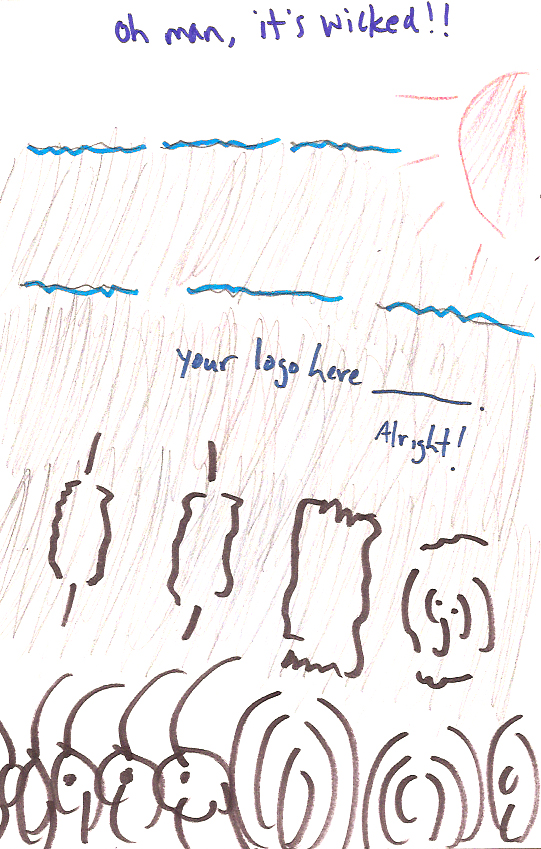 oh man, it's wicked!!
your logo here ______.
Alright!